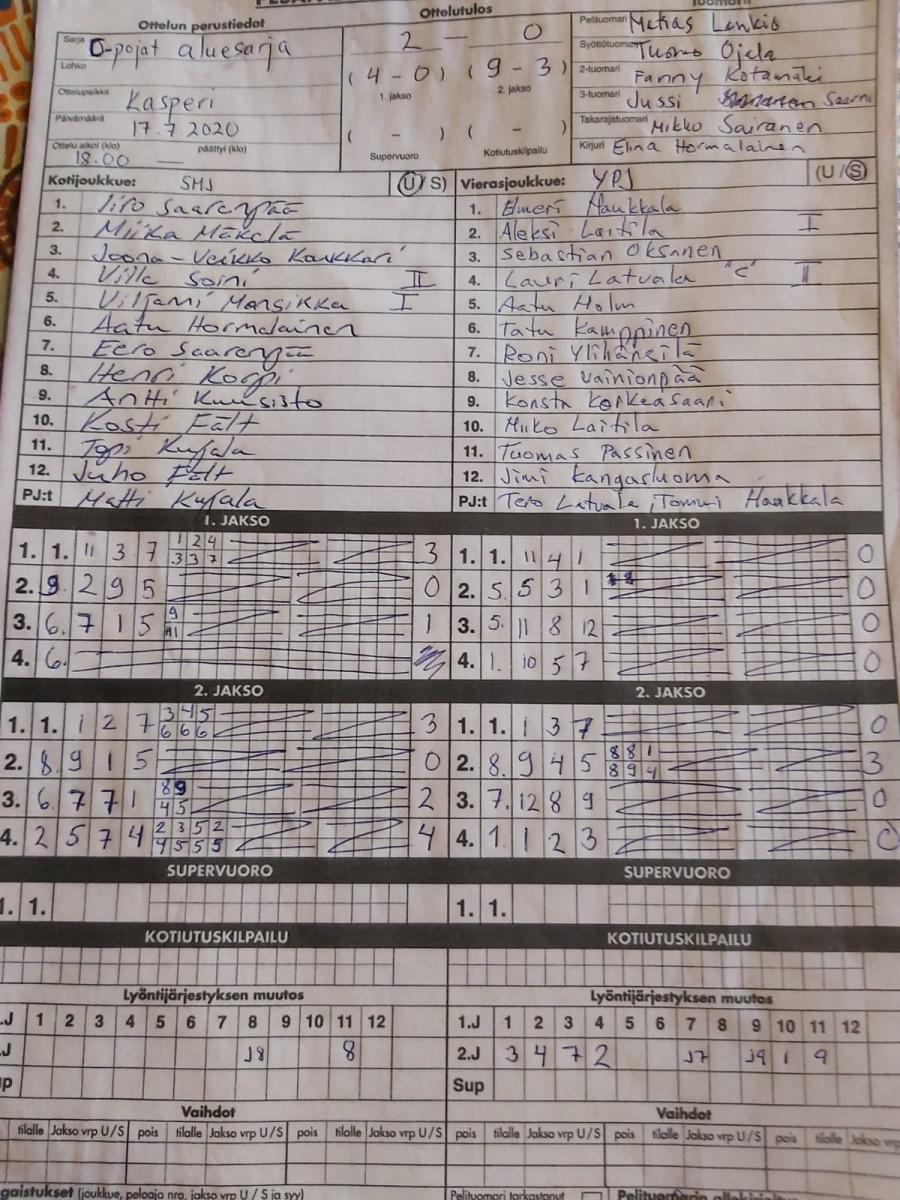 Ottelun perustiedot
Sarja D-pojat aluesarja
Lohko
Ottelupaikka Kasperi
Päivämäärä 17.7.2020
Ottelu alkoi (klo) päättyi (klo)
18.00 —
Ottelutulos
2 – 0
(4 - 0) (9 - 3)
1. jakso 2. jakso
( - ) ( - )
Supervuoro Kotiutuskilpailu
Pelituomari Matias Lankio
Syöttötuomari Tuomo Ojala
2-tuomari Fanny Kotamäki
3-tuomari Jussi Saarni
Takarajatuomari Mikko Sairanen
Kirjuri Elina Hormalainen
Kotijoukkue: SMJ (U/S)
1. Iiro Saarenpää
2. Miika Mäkelä
3. Joona-Veikko Koukkari
4. Ville Soini II
5. Viljami Mansikka I
6. Aatu Hormalainen
7. Eero Saarenpää
8. Henri Korpi
9. Antti Kuusisto
10. Kosti Fält
11. Topi Kujala
12. Juho Fält
PJ:t Matti Kujala
Vierasjoukkue: YPJ (U/S)
1. Elmeri Haukkala
2. Aleksi Laitila I
3. Sebastian Oksanen
4. Lauri Latvala "C" II
5. Aatu Holm
6. Tatu Kamppinen
7. Roni Ylihärsilä
8. Jesse Vainionpää
9. Konsta Korkeasaari
10. Miiko Laitila
11. Tuomas Passinen
12. Jimi Kangasluoma
PJ:t Tero Latvala, Tommi Haukkala
1. JAKSO
1. 1. 11 3 7 1 2 4 3
3 3 7
2. 9. 2 9 5 0
3. 6. 7 1 5 9 1
11
4. 6.
1. JAKSO
1. 1. 11 4 1 0
2. 5. 5 3 1 0
3. 5. 11 8 12 0
4. 1. 10 5 7 0
2. JAKSO
1. 1. 1 2 7 3 4 5 3
6 6 6
2. 8. 9 1 5 0
3. 6. 7 7 1 8 9 2
4 5
4. 2 5 7 4 2 3 5 2 4
4 5 5 5
2. JAKSO
1. 1. 1 3 7 0
2. 8. 9 4 5 8 8 1 3
8 9 4
3. 7. 12 8 9 0
4. 1. 1 2 3 0
SUPERVUORO
1. 1.
SUPERVUORO
1. 1.
KOTIUTUSKILPAILU
KOTIUTUSKILPAILU
Lyöntijärjestyksen muutos
.J 1 2 3 4 5 6 7 8 9 10 11 12
J J8 8
p
Lyöntijärjestyksen muutos
1.J 1 2 3 4 5 6 7 8 9 10 11 12
2.J 3 4 7 2 J7 J9 1 9
Sup
Vaihdot
tilalle Jakso vrp U/S pois tilalle Jakso vrp U/S pois tilalle Jakso vrp U/S
Vaihdot
pois tilalle Jakso vrp U/S pois tilalle Jakso vrp U/S pois tilalle Jakso vrp
gaistukset (joukkue, pelaaja nro, jakso vrp U / S ja syy)
Pelituomari tarkastanut